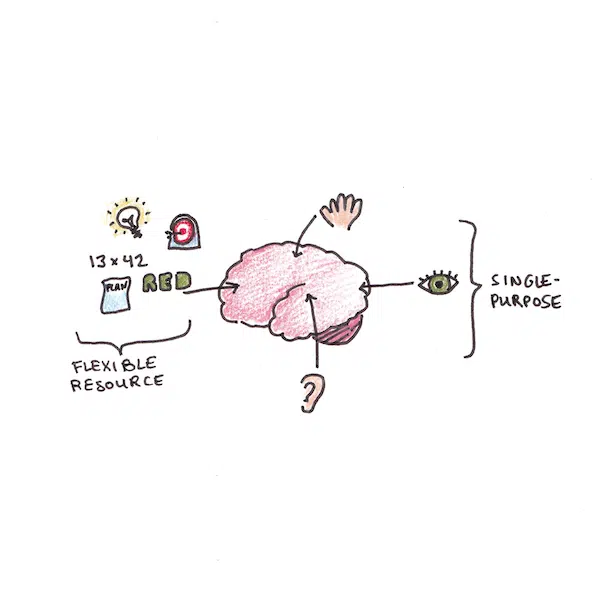 13 x 42
PLAN
RED
FLEXIBLE
RESOURCE
SINGLE-
PURPOSE